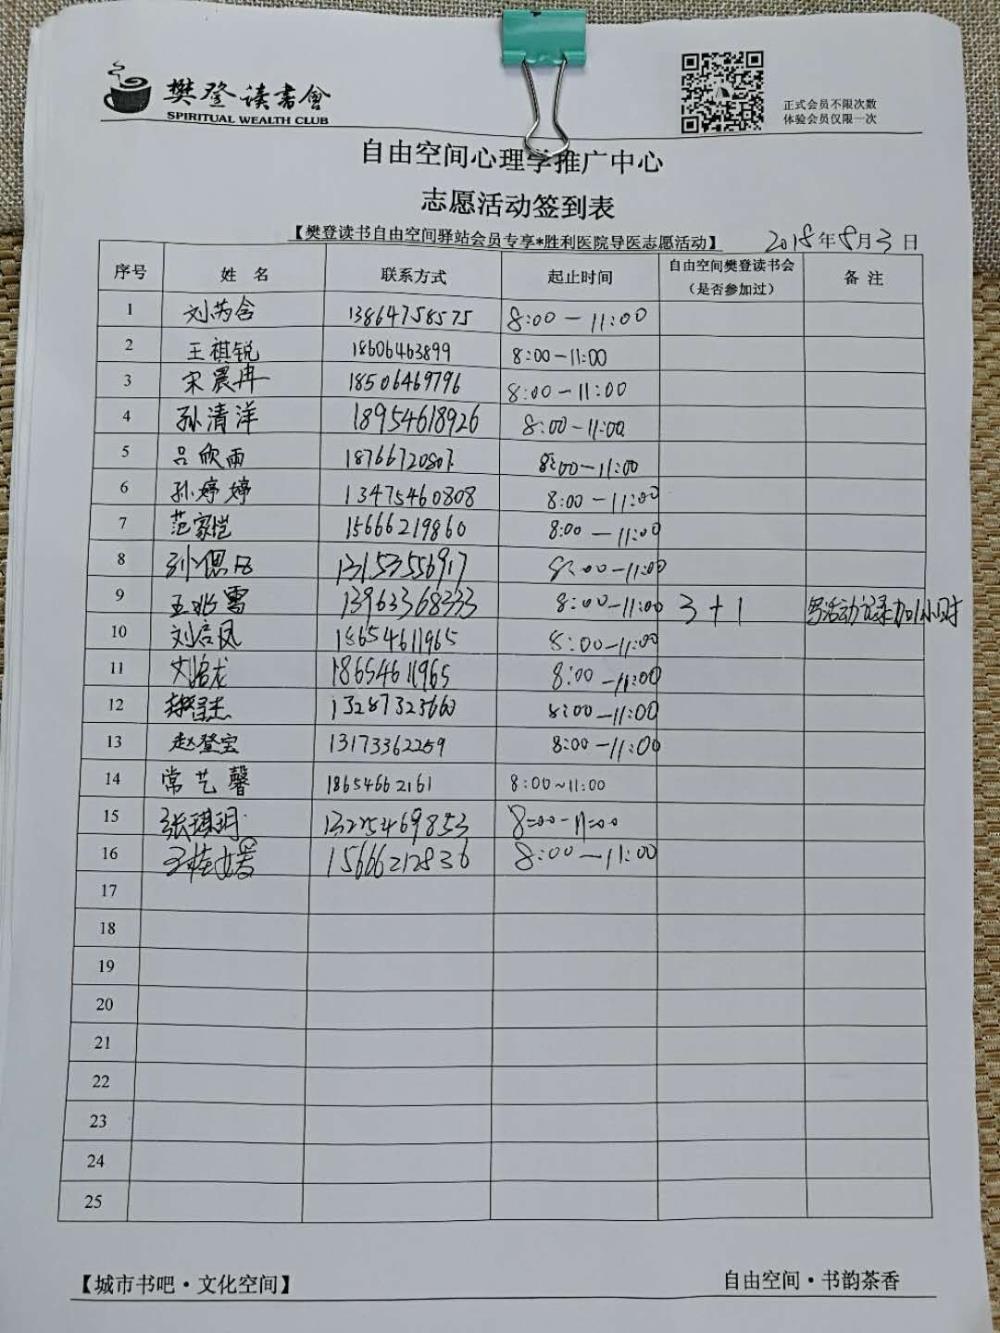 樊登读书会
SPIRITUAL WEALTH CLUB
正式会员不限次数
体验会员仅限一次
自由空间心理学推广中心
志愿活动签到表
【樊登读书自由空间驿站会员专享*胜利医院导医志愿活动】 2018年8月3日
序号 姓名 联系方式 起止时间 自由空间樊登读书会（是否参加过） 备注
1 刘芮含 13864758575 8:00-11:00
2 王祺锐 18606463899 8:00-11:00
3 宋震冉 18506469796 8:00-11:00
4 孙清洋 18954618926 8:00-11:00
5 吕欣雨 8:00-11:00
6 孙婷婷 13475460808 8:00-11:00
7 范家恺 15666219860 8:00-11:00
8 13153556917 8:00-11:00
9 王兆雷 13963368333 8:00-11:00 3+1 写活动记录加1小时
10 刘启凤 18654611965 8:00-11:00
11 18654611965 8:00-11:00
12 13287323660 8:00-11:00
13 赵登宝 13173362259 8:00-11:00
14 常艺馨 18654662161 8:00~11:00
15 张琪玥 13225469853 8=00-11=00
16 15666212836 8:00-11:00
17
18
19
20
21
22
23
24
25
【城市书吧·文化空间】 自由空间·书韵茶香